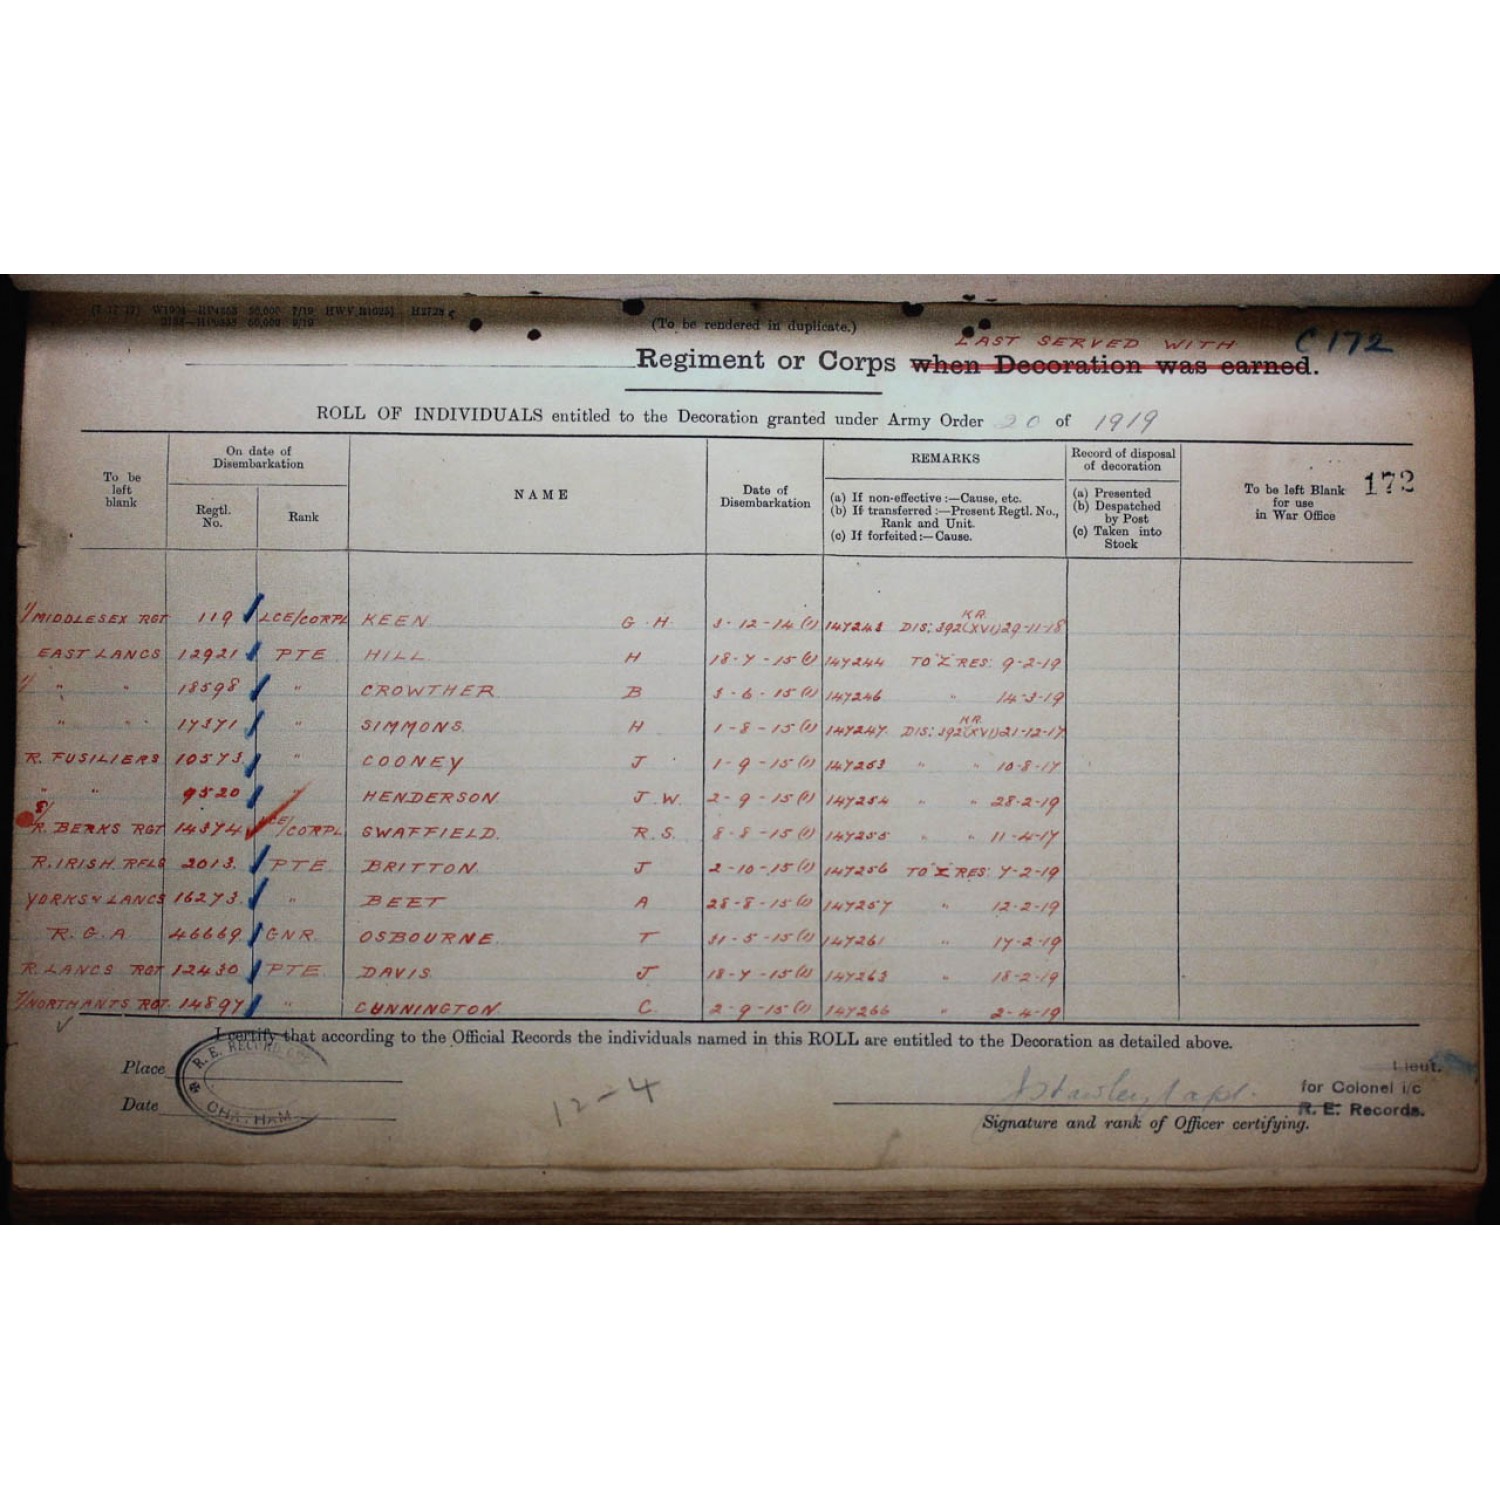 (To be rendered in duplicate.)
LAST SERVED WITH C172
Regiment or Corps when Decoration was earned.
ROLL OF INDIVIDUALS entitled to the Decoration granted under Army Order 20 of 1919
To be left blank
On date of Disembarkation
Regtl. No.
Rank
NAME
Date of Disembarkation
REMARKS
(a) If non-effective :—Cause, etc.
(b) If transferred :—Present Regtl. No., Rank and Unit.
(c) If forfeited :—Cause.
Record of disposal of decoration
(a) Presented
(b) Despatched by Post
(c) Taken into Stock
To be left Blank for use in War Office
172
1/ MIDDLESEX RGT 119 LCE/CORPL KEEN G.H. 3-12-14 (1) 147243 DIS: 392 (XVI) K.R. 29-11-18
EAST LANCS 12921 PTE HILL H 18-7-15 147244 TO "Z" RES: 9-2-19
" " 18598 " CROWTHER B 3-6-15 (1) 147246 " 14-3-19
" " 17371 " SIMMONS. H 1-8-15 (1) 147247 DIS: 392 (XVI) K.R. 21-12-17
R. FUSILIERS 10573 " COONEY J 1-9-15 (1) 147253 " " 10-8-17
" " 9520 HENDERSON. J.W. 2-9-15 (1) 147254 " " 28-2-19
8/ R. BERKS RGT 14374 LCE/CORPL SWAFFIELD. R.S. 8-8-15 (1) 147255 " " 11-4-17
R. IRISH RFLS 2013. PTE BRITTON. J 2-10-15 (1) 147256 TO "Z" RES: 7-2-19
YORKS & LANCS 16273. " BEET A 28-8-15 147257 " 12-2-19
R.G.A 46669 GNR. OSBOURNE. T 31-5-15 (1) 147261 " 17-2-19
R. LANCS RGT 12430 PTE. DAVIS J 18-7-15 147263 " 18-2-19
7/ NORTHANTS RGT. 14897 " CUNNINGTON. C. 2-9-15 (1) 147266 " 2-4-19
I certify that according to the Official Records the individuals named in this ROLL are entitled to the Decoration as detailed above.
Place
Date
R. E. RECORD
CHATHAM
12-4
Lieut.
for Colonel i/c
R. E. Records.
Signature and rank of Officer certifying.